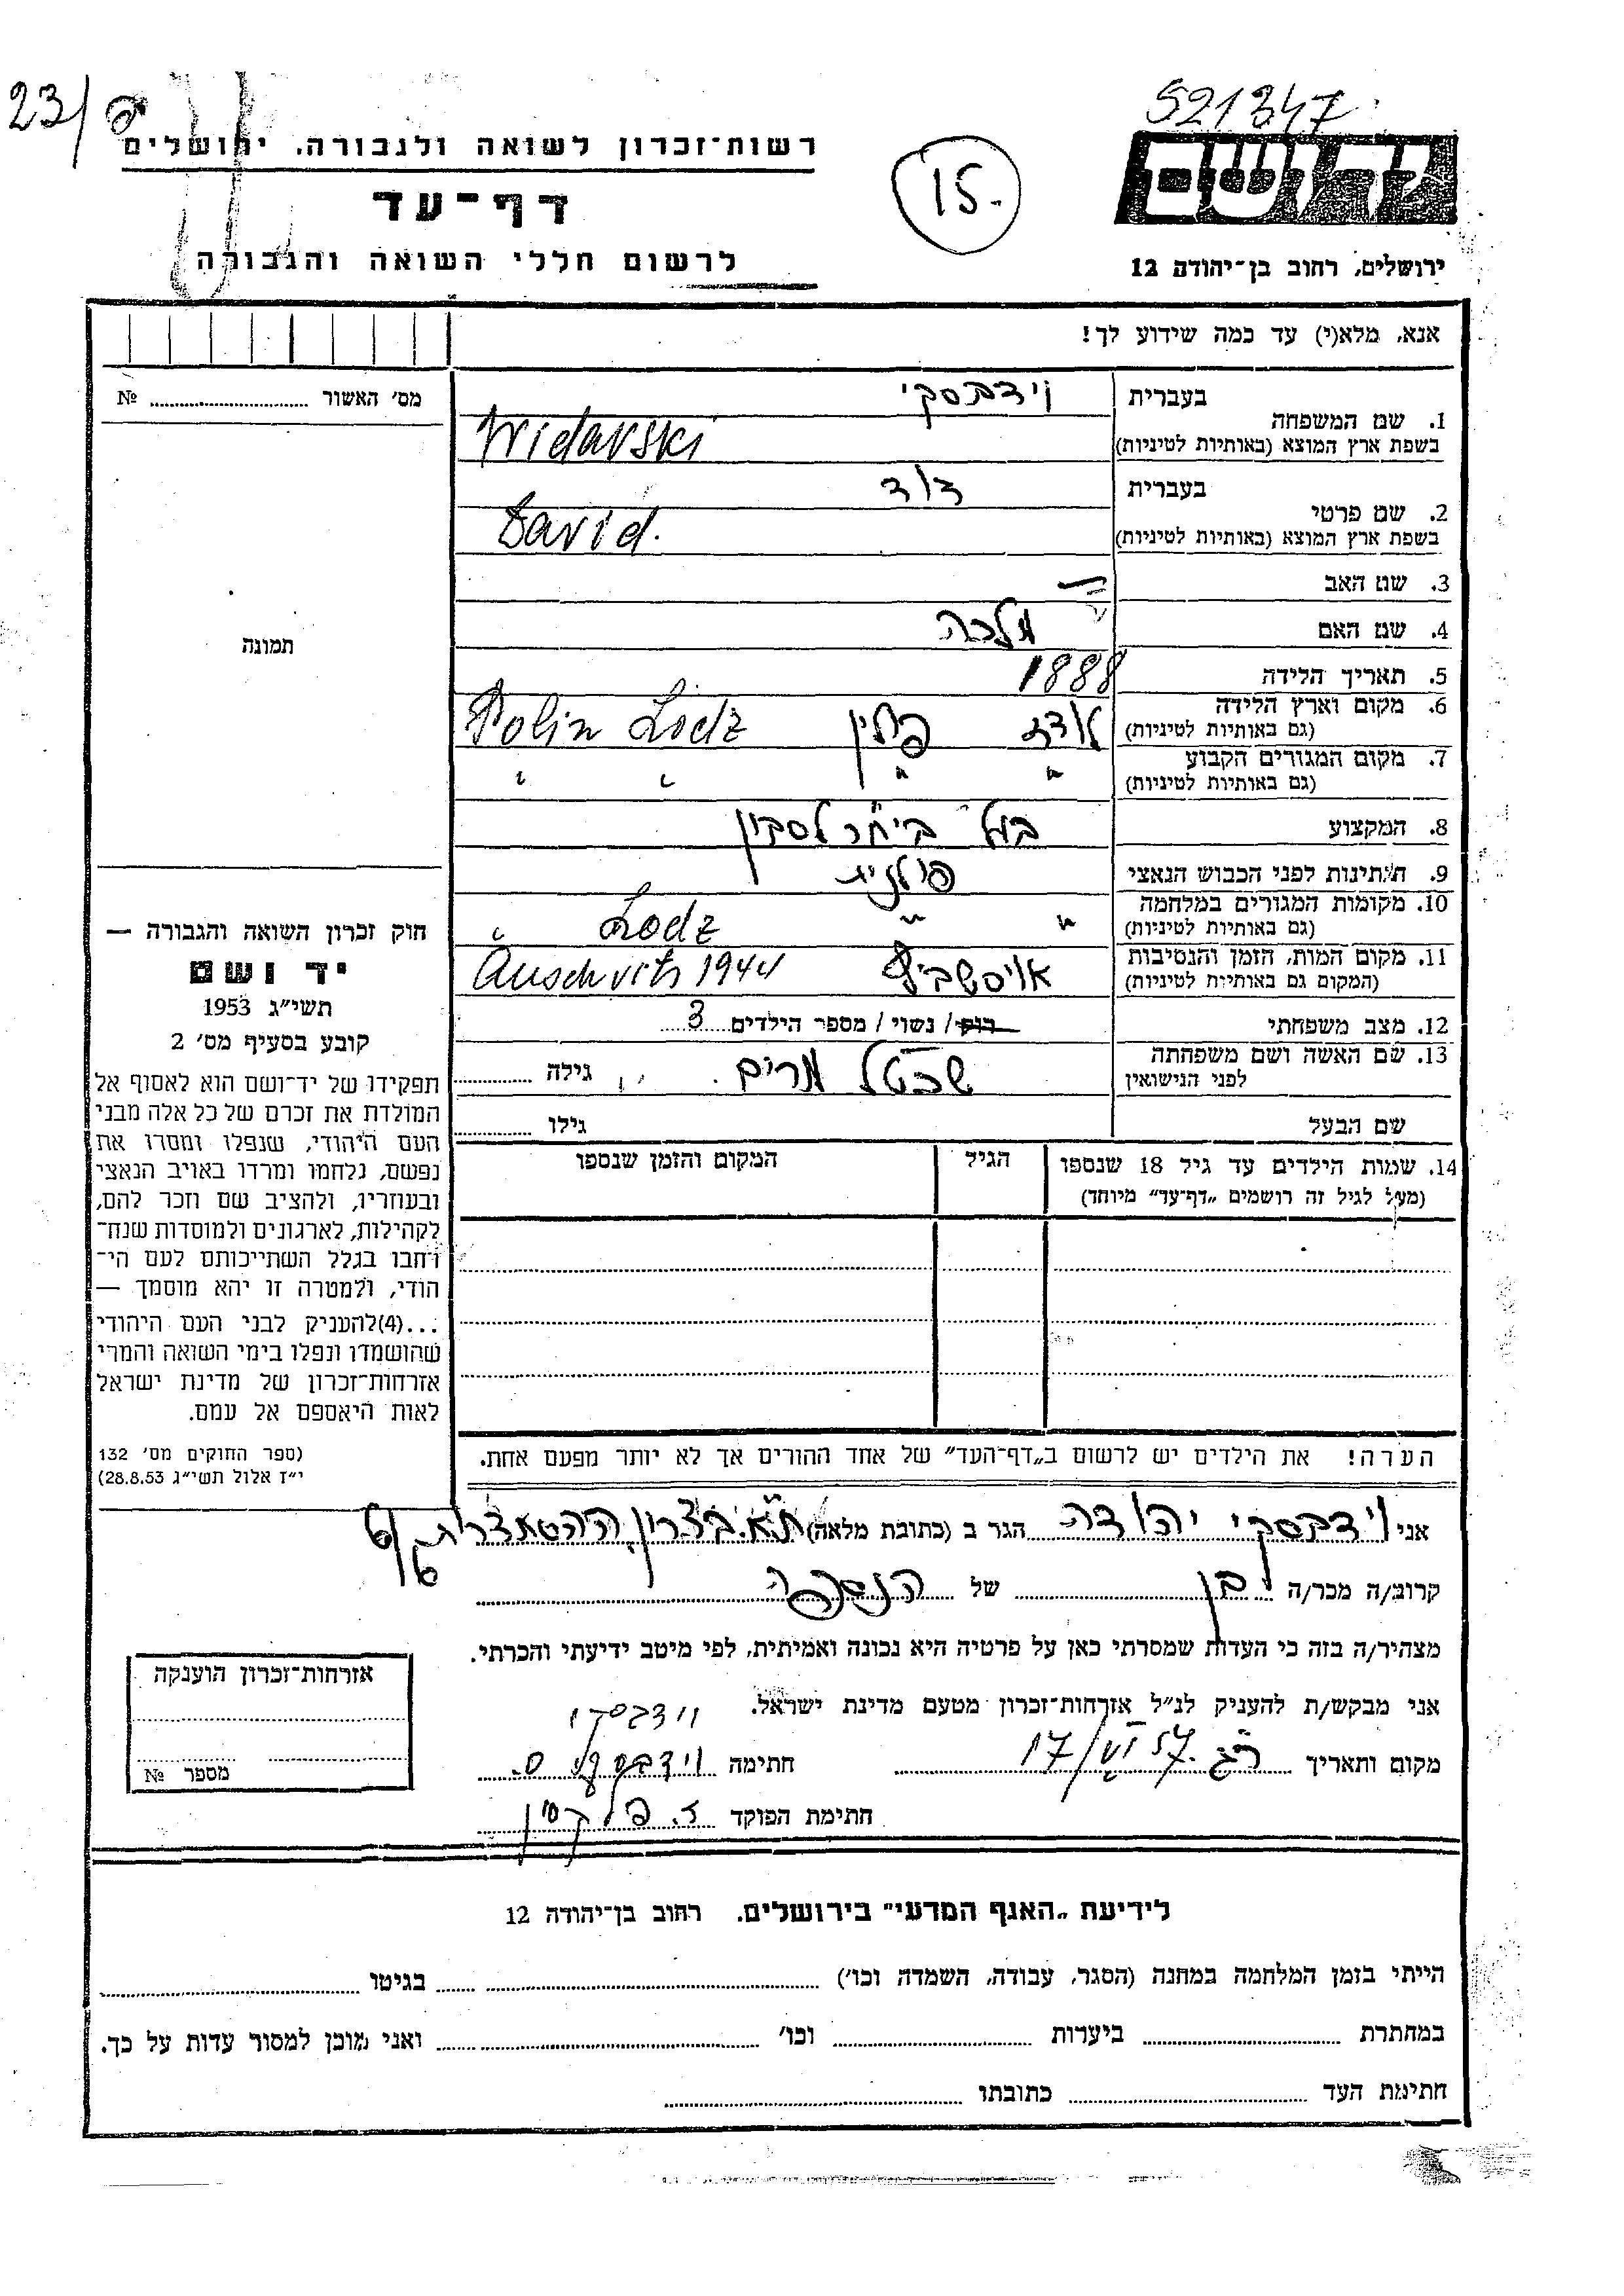 23/
521347
רשות־זכרון לשואה ולגבורה. ירושלים
דף־עד
לרשום חללי השואה והגבורה
15.
ירושלים, רחוב בן־יהודה 12
אנא, מלא(י) עד כמה שידוע לך!
מס׳ האשור ........ №
תמונה
1. שם המשפחה
בעברית
וידבסקי
בשפת ארץ המוצא (באותיות לטיניות)
Widavski
2. שם פרטי
בעברית
דוד
בשפת ארץ המוצא (באותיות לטיניות)
David.
3. שם האב
4. שם האם מלכה
5. תאריך הלידה 1888
6. מקום וארץ הלידה
(גם באותיות לטיניות)
לודז פולין Polin Lodz
7. מקום המגורים הקבוע
(גם באותיות לטיניות)
" " " "
8. המקצוע בעל ביח״ר לסבון
9. תתינות לפני הכבוש הנאצי פולנית
10. מקומות המגורים במלחמה
(גם באותיות לטיניות)
" " Lodz "
11. מקום המות, הזמן והנסיבות
(המקום גם באותיות לטיניות)
אוישביץ Auschvits 1944
12. מצב משפחתי רווק / נשוי / מספר הילדים 3
13. שם האשה ושם משפחתה
לפני הנישואין
מרים גילה
שם הבעל גילו
14. שמות הילדים עד גיל 18 שנספו
(מעל לגיל זה רושמים „דף־עד” מיוחד)
הגיל
המקום והזמן שנספו
הערה! את הילדים יש לרשום ב„דף־העד” של אחד ההורים אך לא יותר מפעם אחת.
חוק זכרון השואה והגבורה —
יד ושם
תשי״ג 1953
קובע בסעיף מס׳ 2
תפקידו של יד־ושם הוא לאסוף אל
המולדת את זכרם של כל אלה מבני
העם היהודי, שנפלו ומסרו את
נפשם, נלחמו ומרדו באויב הנאצי
ובעוזריו, ולהציב שם וזכר להם,
לקהילות, לארגונים ולמוסדות שנח־
רחבו בגלל השתייכותם לעם הי־
הודי, ולמטרה זו יהא מוסמך —
...(4)להעניק לבני העם היהודי
שהושמדו ונפלו בימי השואה והמרי
אזרחות־זכרון של מדינת ישראל
לאות היאספם אל עמם.
(ספר החוקים מס׳ 132
י״ז אלול תשי״ג 28.8.53)
אני וידבסקי יהודה הגר ב (כתובת מלאה) ת״א. ביצרון, ההסתדרות
קרוב/ה מכר/ה בן של הנספה
מצהיר/ה בזה כי העדות שמסרתי כאן על פרטיה היא נכונה ואמיתית, לפי מיטב ידיעתי והכרתי.
אני מבקש/ת להעניק לנ״ל אזרחות־זכרון מטעם מדינת ישראל.
וידבסקי
מקום ותאריך ר״ג 17/VI 57. חתימה וידבסקי
חתימת הפוקד
אזרחות־זכרון הוענקה
מספר №
לידיעת „האגף המדעי” בירושלים. רחוב בן־יהודה 12
הייתי בזמן המלחמה במחנה (הסגר, עבודה, השמדה וכו׳) ........ בגיטו ........
במחתרת ........ ביערות ........ וכו׳ ........ ואני מוכן למסור עדות על כך.
חתימת העד ........ כתובתו ........